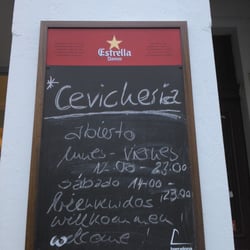 Estrella
Damm
*Cevicheria
abierto
lunes-viernes
12:00-23:00
sábado 14:00-
23:00
Bienvenidos
willkommen!
welcome!
barcelona